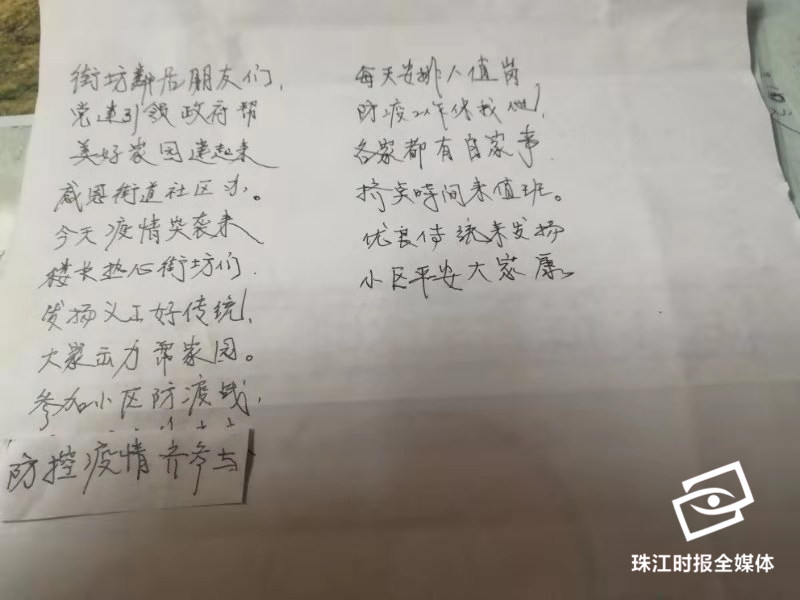 街坊邻居朋友们，
党建引领政府帮
美好家园建起来
感恩街道社区办。
今天疫情突袭来
楼长热心街坊们．
发扬义工好传统，
大家出力帮家园。
参加小区防渡战，
防控疫情齐参与
每天安排人值岗
防疫工作休我他，
各家都有自家事．
挤点时间来值班。
优良传统来发扬
小区平安大家康。
珠江时报全媒体